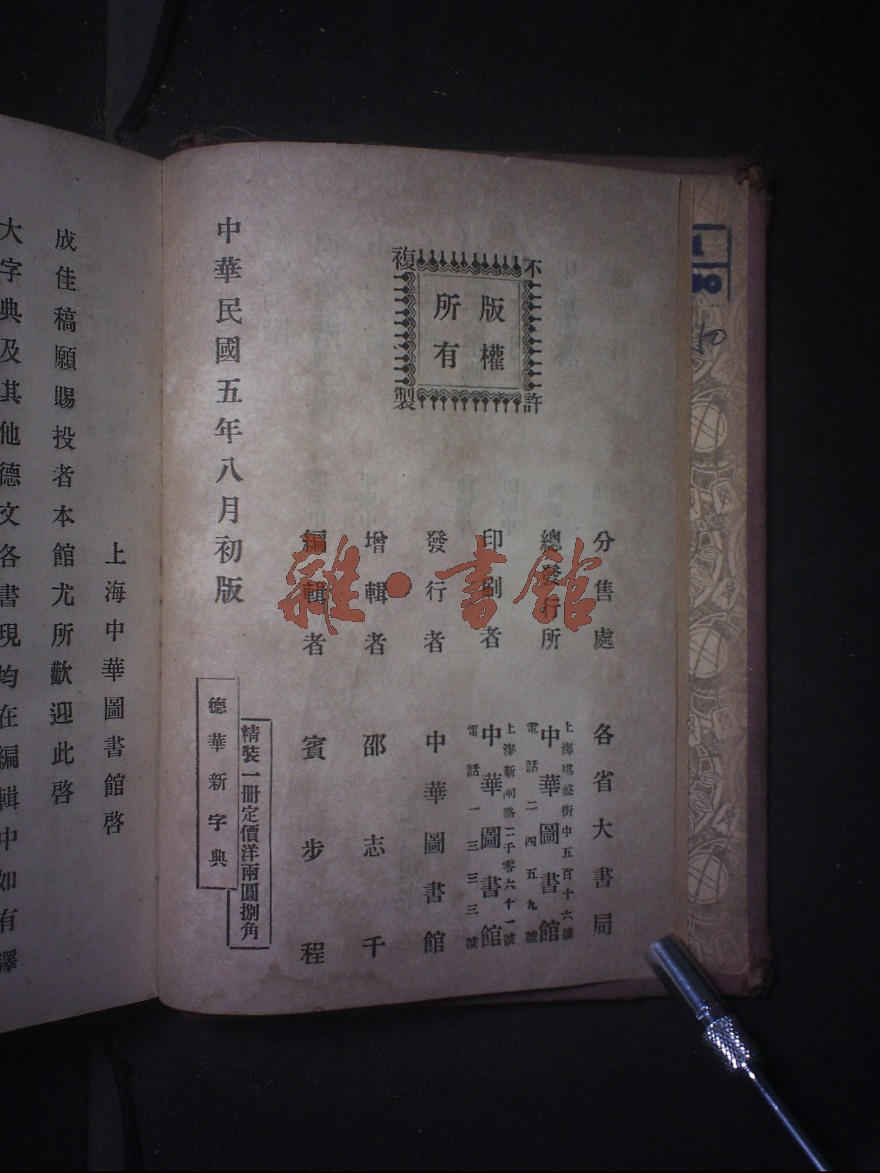 不許
複製
版權
所有
分售處　各省大書局
總發行所　中華圖書館
上海棋盤街中五百十六號
電話二四五九號
印刷者　中華圖書館
上海新閘路一千零六十一號
電話一三三三號
發行者　中華圖書館
增輯者　邵志千
編輯者　賓步程
精裝一冊定價洋兩圓捌角
德華新字典
中華民國五年八月初版
上海中華圖書館啓
成佳稿願賜投者本館尤所歡迎此啓
大字典及其他德文各書現均在編輯中如有譯
雜·書館